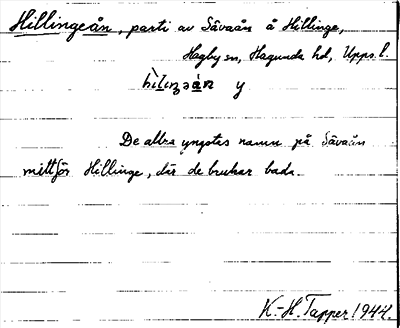 Hillingeån, parti av Sävaån å Hillinge,
Hagby sn, Hagunda hd, Upps. l.
y
De allra yngstas namn på Sävaån
mittför Hillinge, där de brukar bada.
K.-H. Tapper 1944.